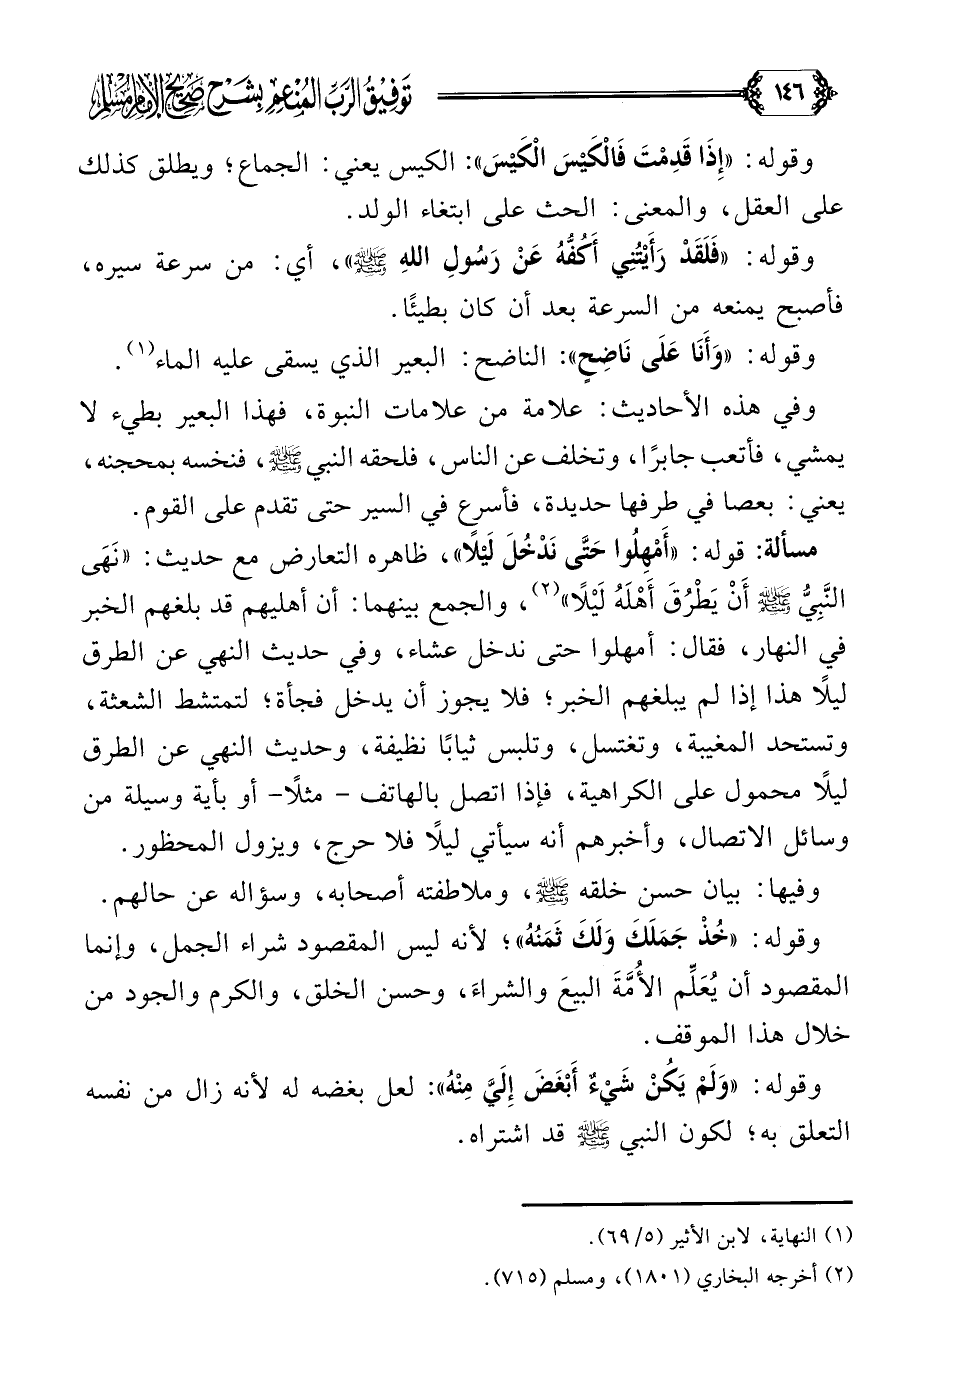 ١٤٦
توفيق الرب المنعم بشرح صحيح الإمام مسلم
وقوله: «إِذَا قَدِمْتَ فَالْكَيْسَ الْكَيْسَ»: الكيس يعني: الجماع؛ ويطلق كذلك
على العقل، والمعنى: الحث على ابتغاء الولد.
وقوله: «فَلَقَدْ رَأَيْتُنِي أَكُفُّهُ عَنْ رَسُولِ اللهِ ﷺ»، أي: من سرعة سيره،
فأصبح يمنعه من السرعة بعد أن كان بطيئًا.
وقوله: «وَأَنَا عَلَى نَاضِحٍ»: الناضح: البعير الذي يسقى عليه الماء(١).
وفي هذه الأحاديث: علامة من علامات النبوة، فهذا البعير بطيء لا
يمشي، فأتعب جابرًا، وتخلف عن الناس، فلحقه النبي ﷺ، فنخسه بمحجنه،
يعني: بعصا في طرفها حديدة، فأسرع في السير حتى تقدم على القوم.
مسألة: قوله: «أَمْهِلُوا حَتَّى نَدْخُلَ لَيْلًا»، ظاهره التعارض مع حديث: «نَهَى
النَّبِيُّ ﷺ أَنْ يَطْرُقَ أَهْلَهُ لَيْلًا»(٢)، والجمع بينهما: أن أهليهم قد بلغهم الخبر
في النهار، فقال: أمهلوا حتى ندخل عشاء، وفي حديث النهي عن الطرق
ليلًا هذا إذا لم يبلغهم الخبر؛ فلا يجوز أن يدخل فجأة؛ لتمتشط الشعثة،
وتستحد المغيبة، وتغتسل، وتلبس ثيابًا نظيفة، وحديث النهي عن الطرق
ليلًا محمول على الكراهية، فإذا اتصل بالهاتف - مثلًا- أو بأية وسيلة من
وسائل الاتصال، وأخبرهم أنه سيأتي ليلًا فلا حرج، ويزول المحظور.
وفيها: بيان حسن خلقه ﷺ، وملاطفته أصحابه، وسؤاله عن حالهم.
وقوله: «خُذْ جَمَلَكَ وَلَكَ ثَمَنُهُ»؛ لأنه ليس المقصود شراء الجمل، وإنما
المقصود أن يُعَلِّم الأُمَّةَ البيعَ والشراءَ، وحسن الخلق، والكرم والجود من
خلال هذا الموقف.
وقوله: «وَلَمْ يَكُنْ شَيْءٌ أَبْغَضَ إِلَيَّ مِنْهُ»: لعل بغضه له لأنه زال من نفسه
التعلق به؛ لكون النبي ﷺ قد اشتراه.
(١) النهاية، لابن الأثير (٥/ ٦٩).
(٢) أخرجه البخاري (١٨٠١)، ومسلم (٧١٥).